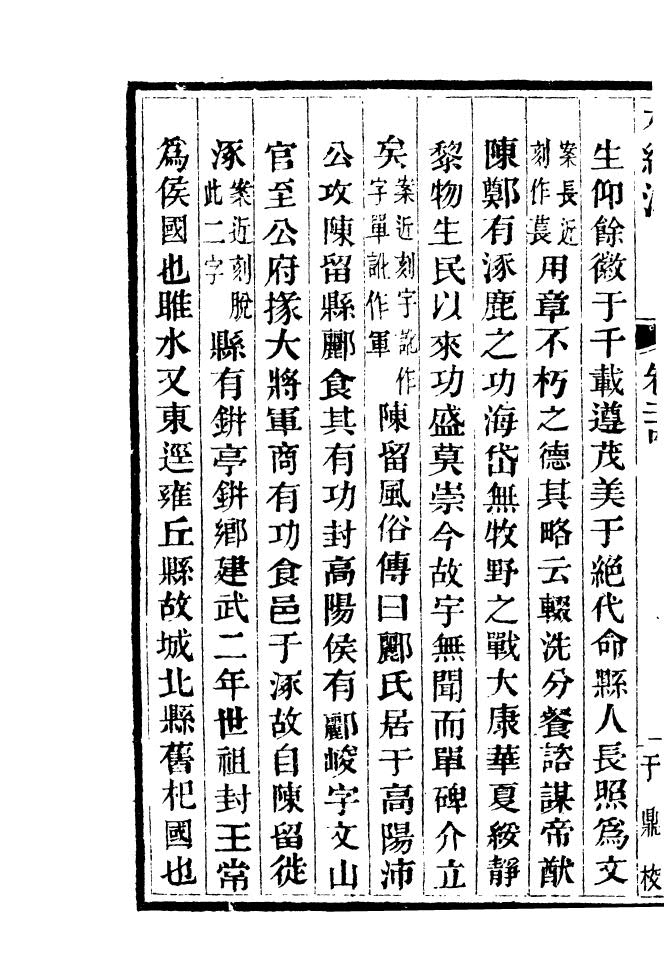 水經注 卷二十四 一 于鼎校
生仰餘徽于千載遵茂美于絕代命縣人長照爲文
案長近刻作萇用章不朽之德其略云輟洗分餐諮謀帝猷
陳鄭有涿鹿之功海岱無牧野之戰大康華夏綏靜
黎物生民以來功盛莫崇今故宇無聞而單碑介立
矣案近刻字訛作字單訛作軍陳留風俗傳曰酈氏居于高陽沛
公攻陳留縣酈食其有功封高陽侯有酈峻字文山
官至公府掾大將軍商有功食邑于涿故自陳留徙
涿案近刻脫此二字縣有鉼亭鉼鄉建武二年世祖封王常
爲侯國也睢水又東逕雍丘縣故城北縣舊杞國也